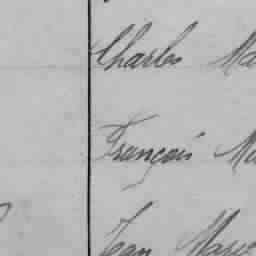 Charles Ma
François Ma
Jean Marie